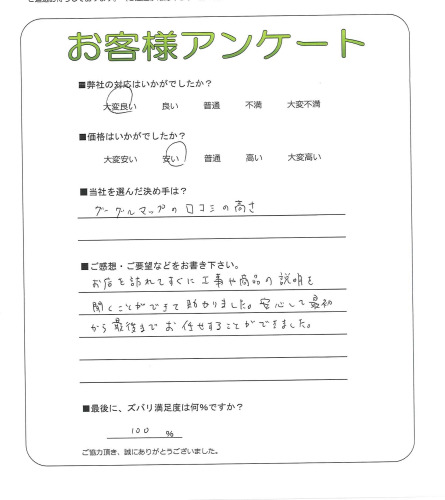 お客様アンケート
■弊社の対応はいかがでしたか?
大変良い 良い 普通 不満 大変不満
■価格はいかがでしたか?
大変安い 安い 普通 高い 大変高い
■当社を選んだ決め手は?
グーグルマップの口コミの高さ
■ご感想・ご要望などをお書き下さい。
お店を訪れてすぐに工事や商品の説明を
聞くことができて助かりました。安心して最初
から最後までお任せすることができました。
■最後に、ズバリ満足度は何%ですか?
100 %
ご協力頂き、誠にありがとうございました。